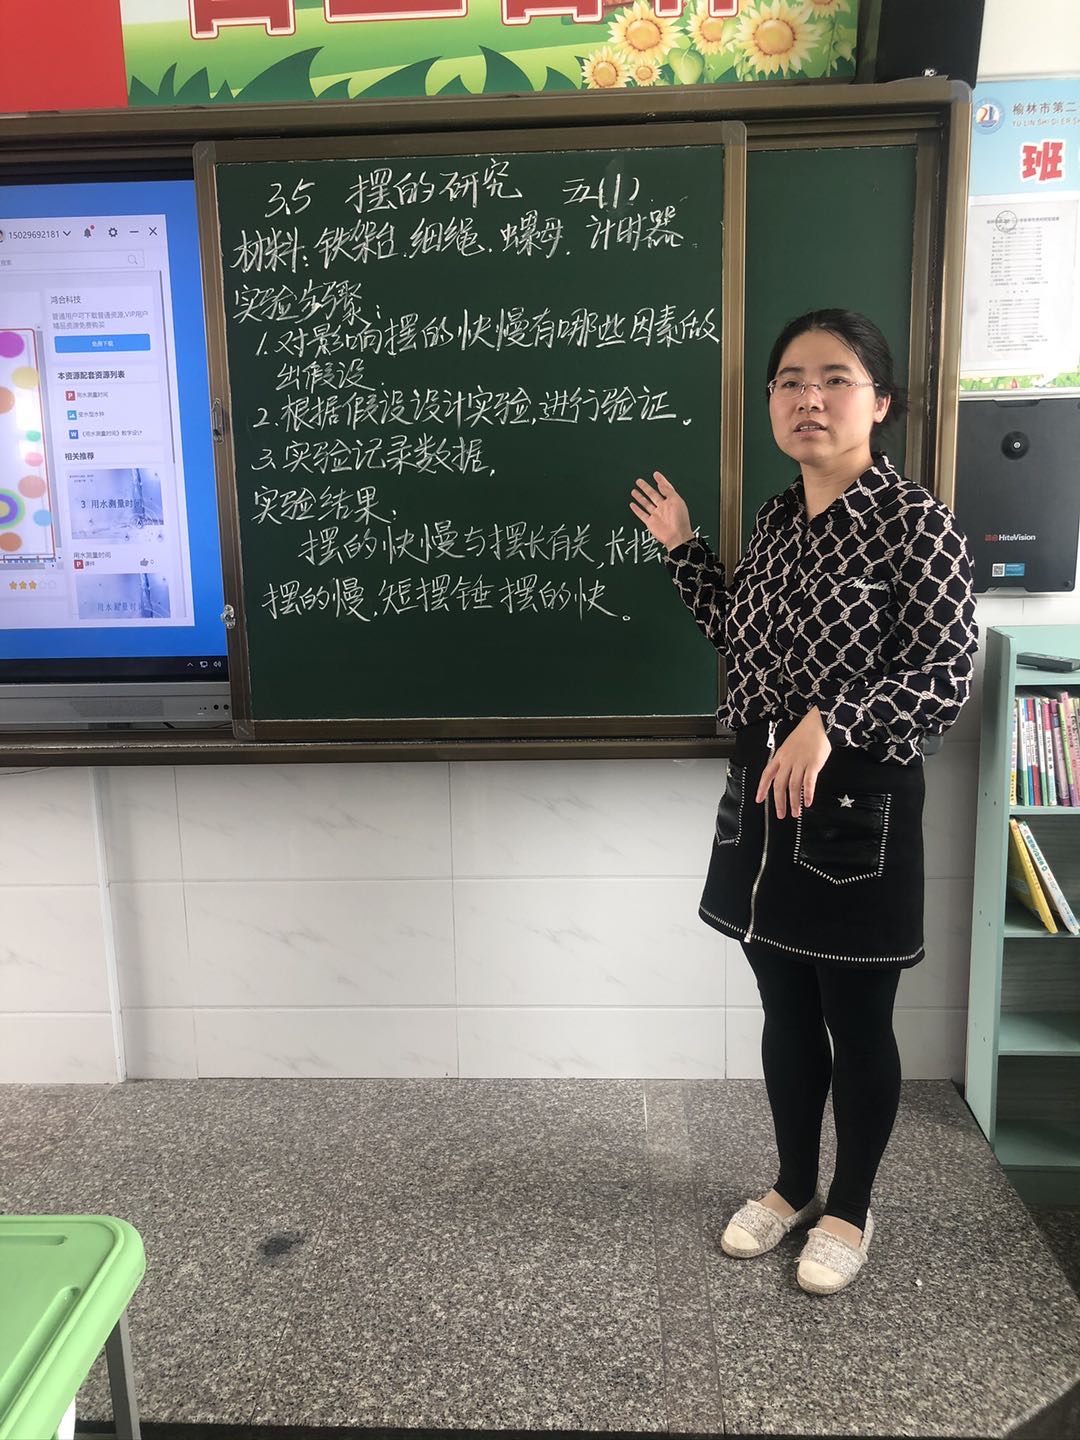 榆林市第二
YU LIN SHI DI ER SH
班
3.5 摆的研究 五(1)
材料：铁架台.细绳.螺母.计时器.
实验步骤：
1.对影响摆的快慢有哪些因素做
出假设.
2.根据假设设计实验,进行验证。
3.实验记录数据,
实验结果：
摆的快慢与摆长有关,长摆
摆的慢.短摆锤摆的快。
15029692181
搜索
鸿合科技
普通用户可下载普通资源,VIP用户
精品资源免费购买
免费下载
本资源配套资源列表
用水测量时间
受水型水钟
《用水测量时间》教学设计
相关推荐
3 用水测量时间
用水测量时间
课件
0
用水测量时间
HiteVision